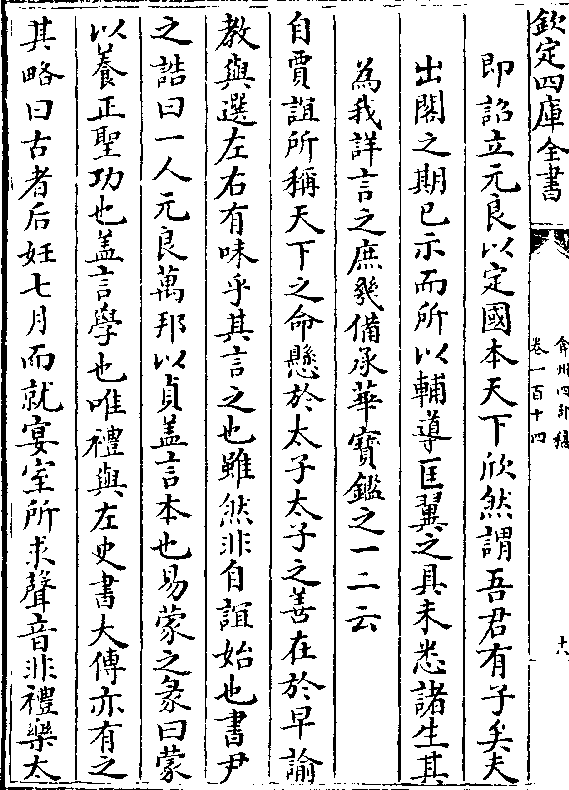 欽定四庫全書
弇州四部稿
卷一百十四
十六
即詔立元良以定國本天下欣然謂吾君有子矣夫
出閣之期已示而所以輔導匡翼之具未悉諸生其
為我詳言之庶幾備承華寶鑑之一二云
自賈誼所稱天下之命懸於太子太子之善在於早諭
教與選左右有味乎其言之也雖然非自誼始也書尹
之誥曰一人元良萬邦以貞蓋言本也易蒙之彖曰蒙
以養正聖功也蓋言學也唯禮與左史書大傳亦有之
其略曰古者后妊七月而就宴室所求聲音非禮樂太